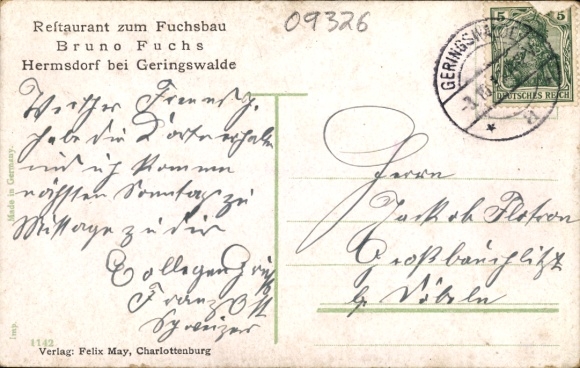 Restaurant zum Fuchsbau
Bruno Fuchs
Hermsdorf bei Geringswalde
09326
5 5
DEUTSCHES REICH
GERINGSWALDE
Werther Freund
habe die Karte erhalten
und ich komme
nächsten Sonntag zu
Mittage zu dir
Collegen Gruß
Franz Ott
Schweizer
Herrn
Jackob Flotron
Großbauchlitz
b. Döbeln
Made in Germany.
Imp.
1142
Verlag: Felix May, Charlottenburg